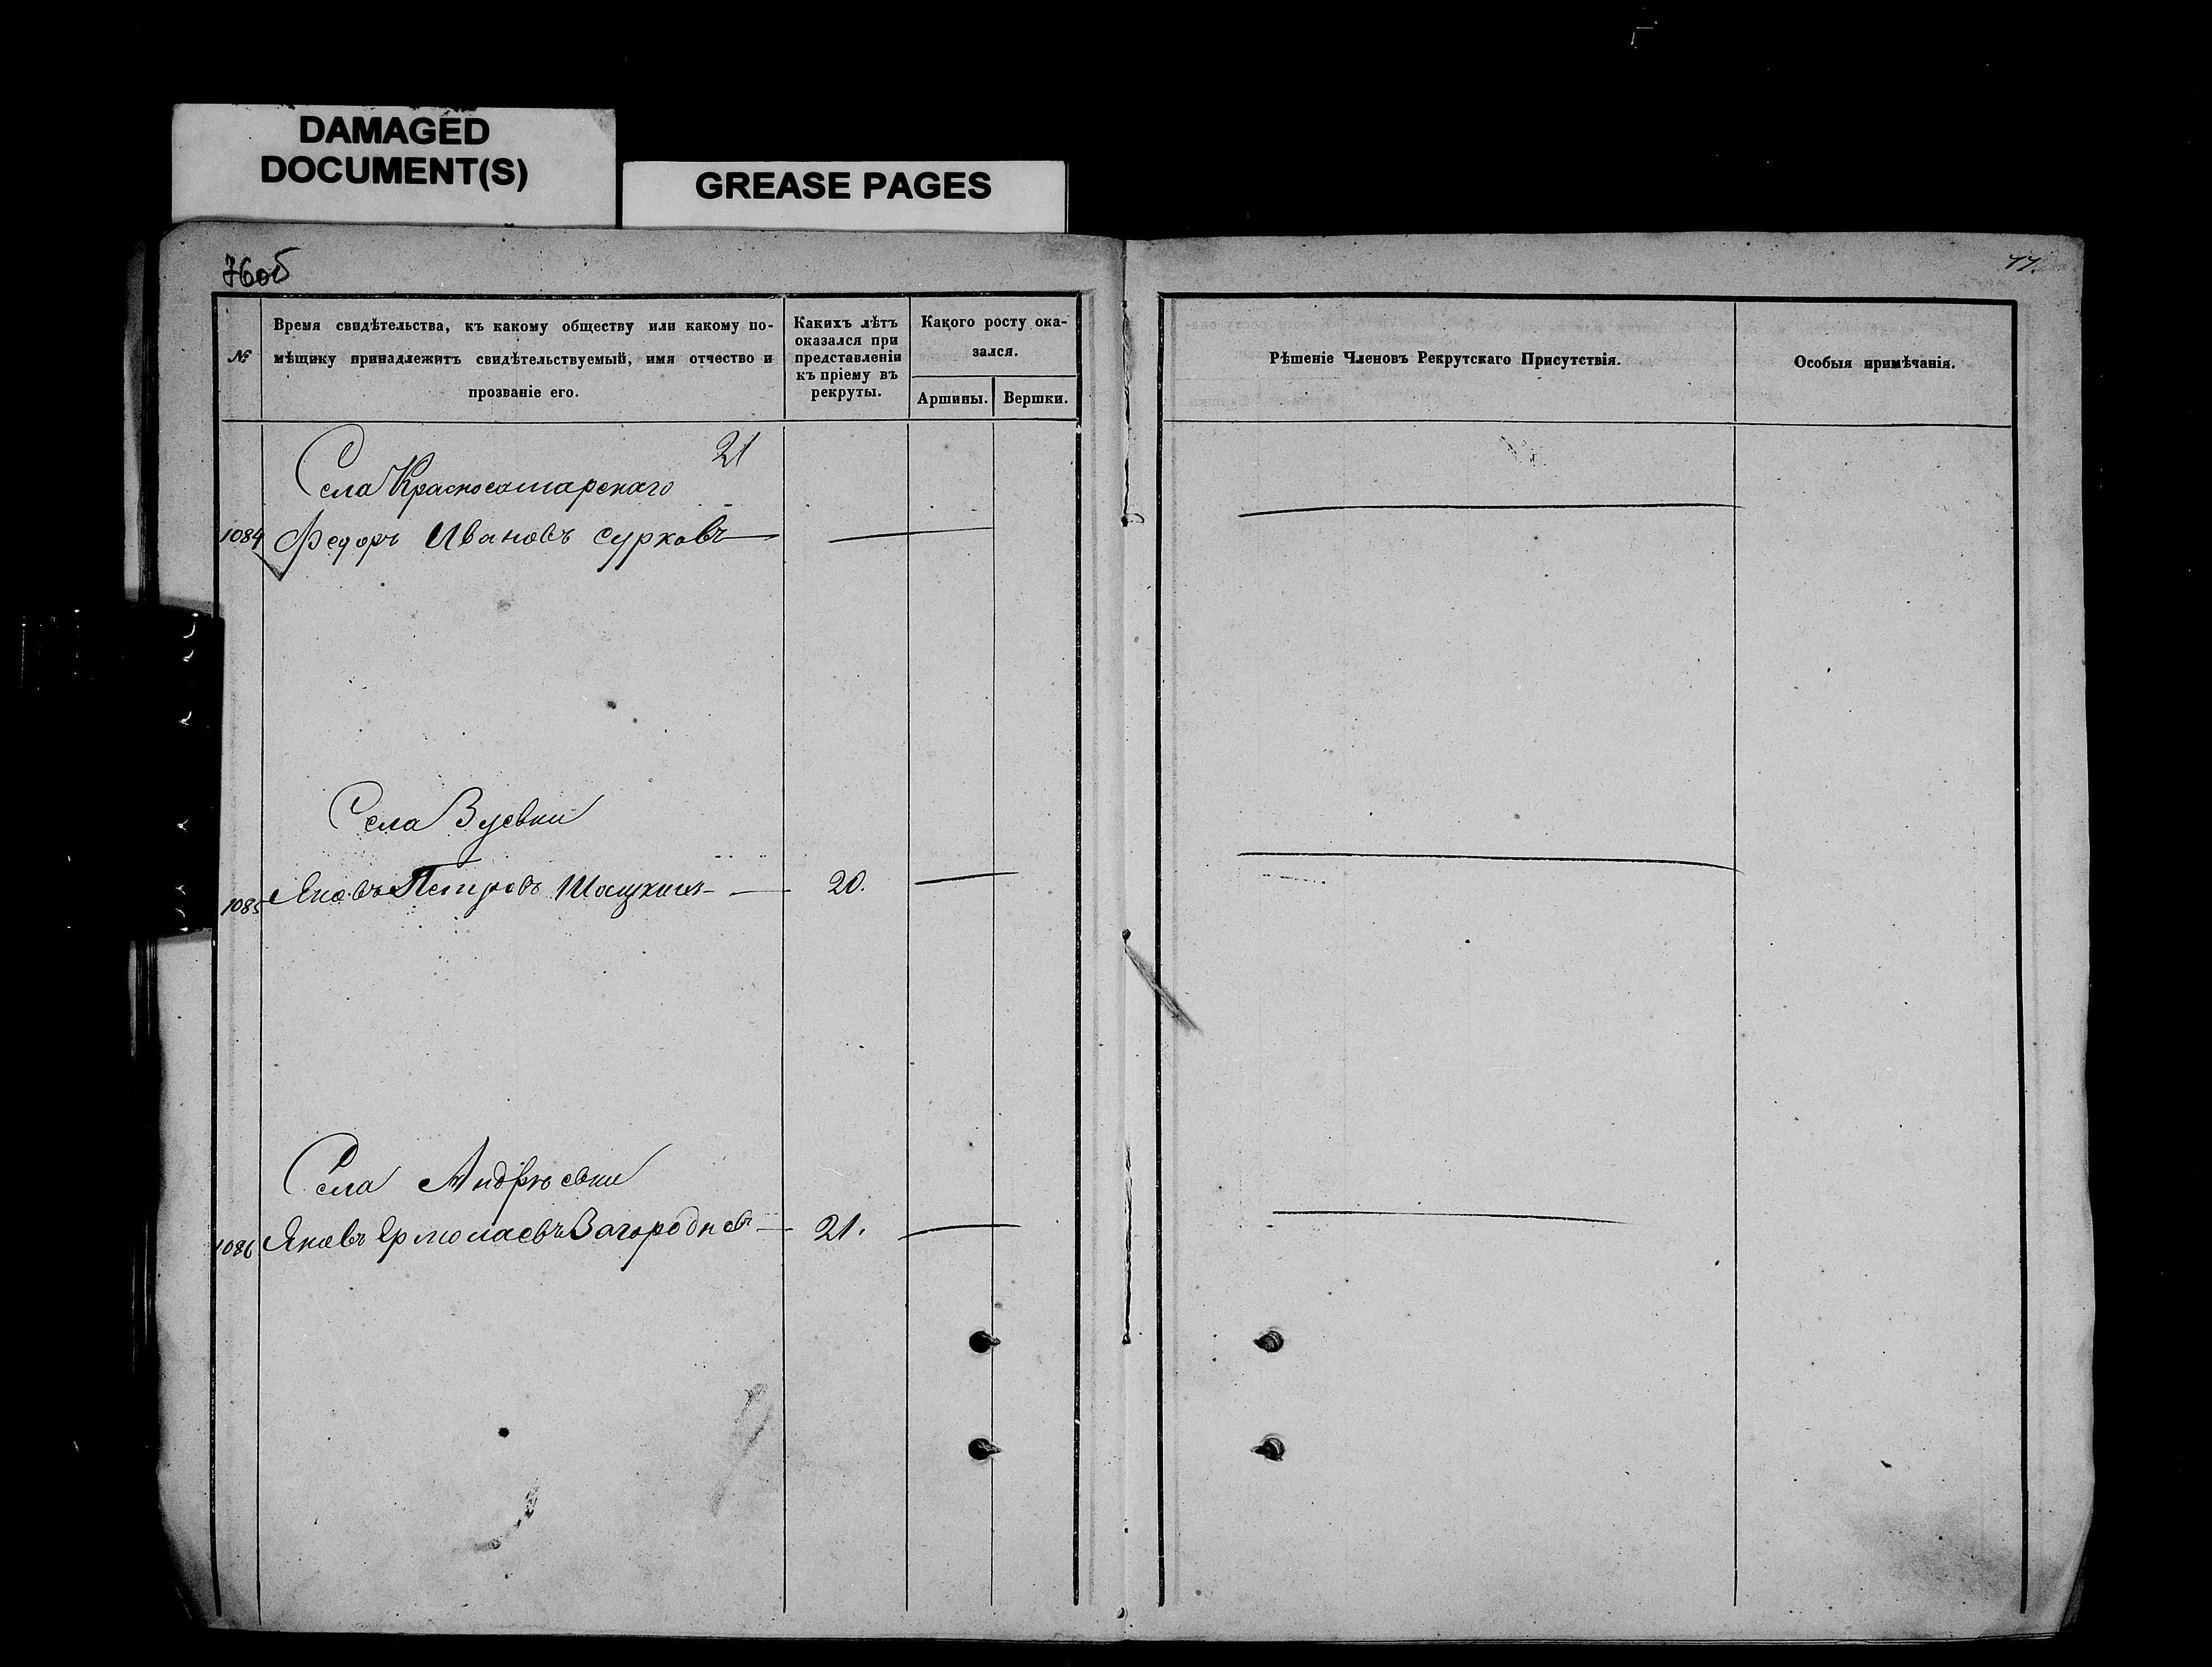 DAMAGED
DOCUMENT(S)
GREASE PAGES
76об
77.
№
Время свидѣтельства, къ какому обществу или какому по-
мѣщику принадлежитъ свидѣтельствуемый, имя отчество и
прозваніе его.
Какихъ лѣтъ
оказался при
представленіи
къ пріему въ
рекруты.
Какого росту ока-
зался.
Аршины.
Вершки.
Рѣшеніе Членовъ Рекрутскаго Присутствія.
Особыя примѣчанія.
21
Села Красносамарскаго
1084 Федоръ Ивановъ Сурковъ
Села
1085 Яковъ Петровъ 20.
Села Андрѣевки
1086 Яковъ Ермолаевъ Загородневъ 21.